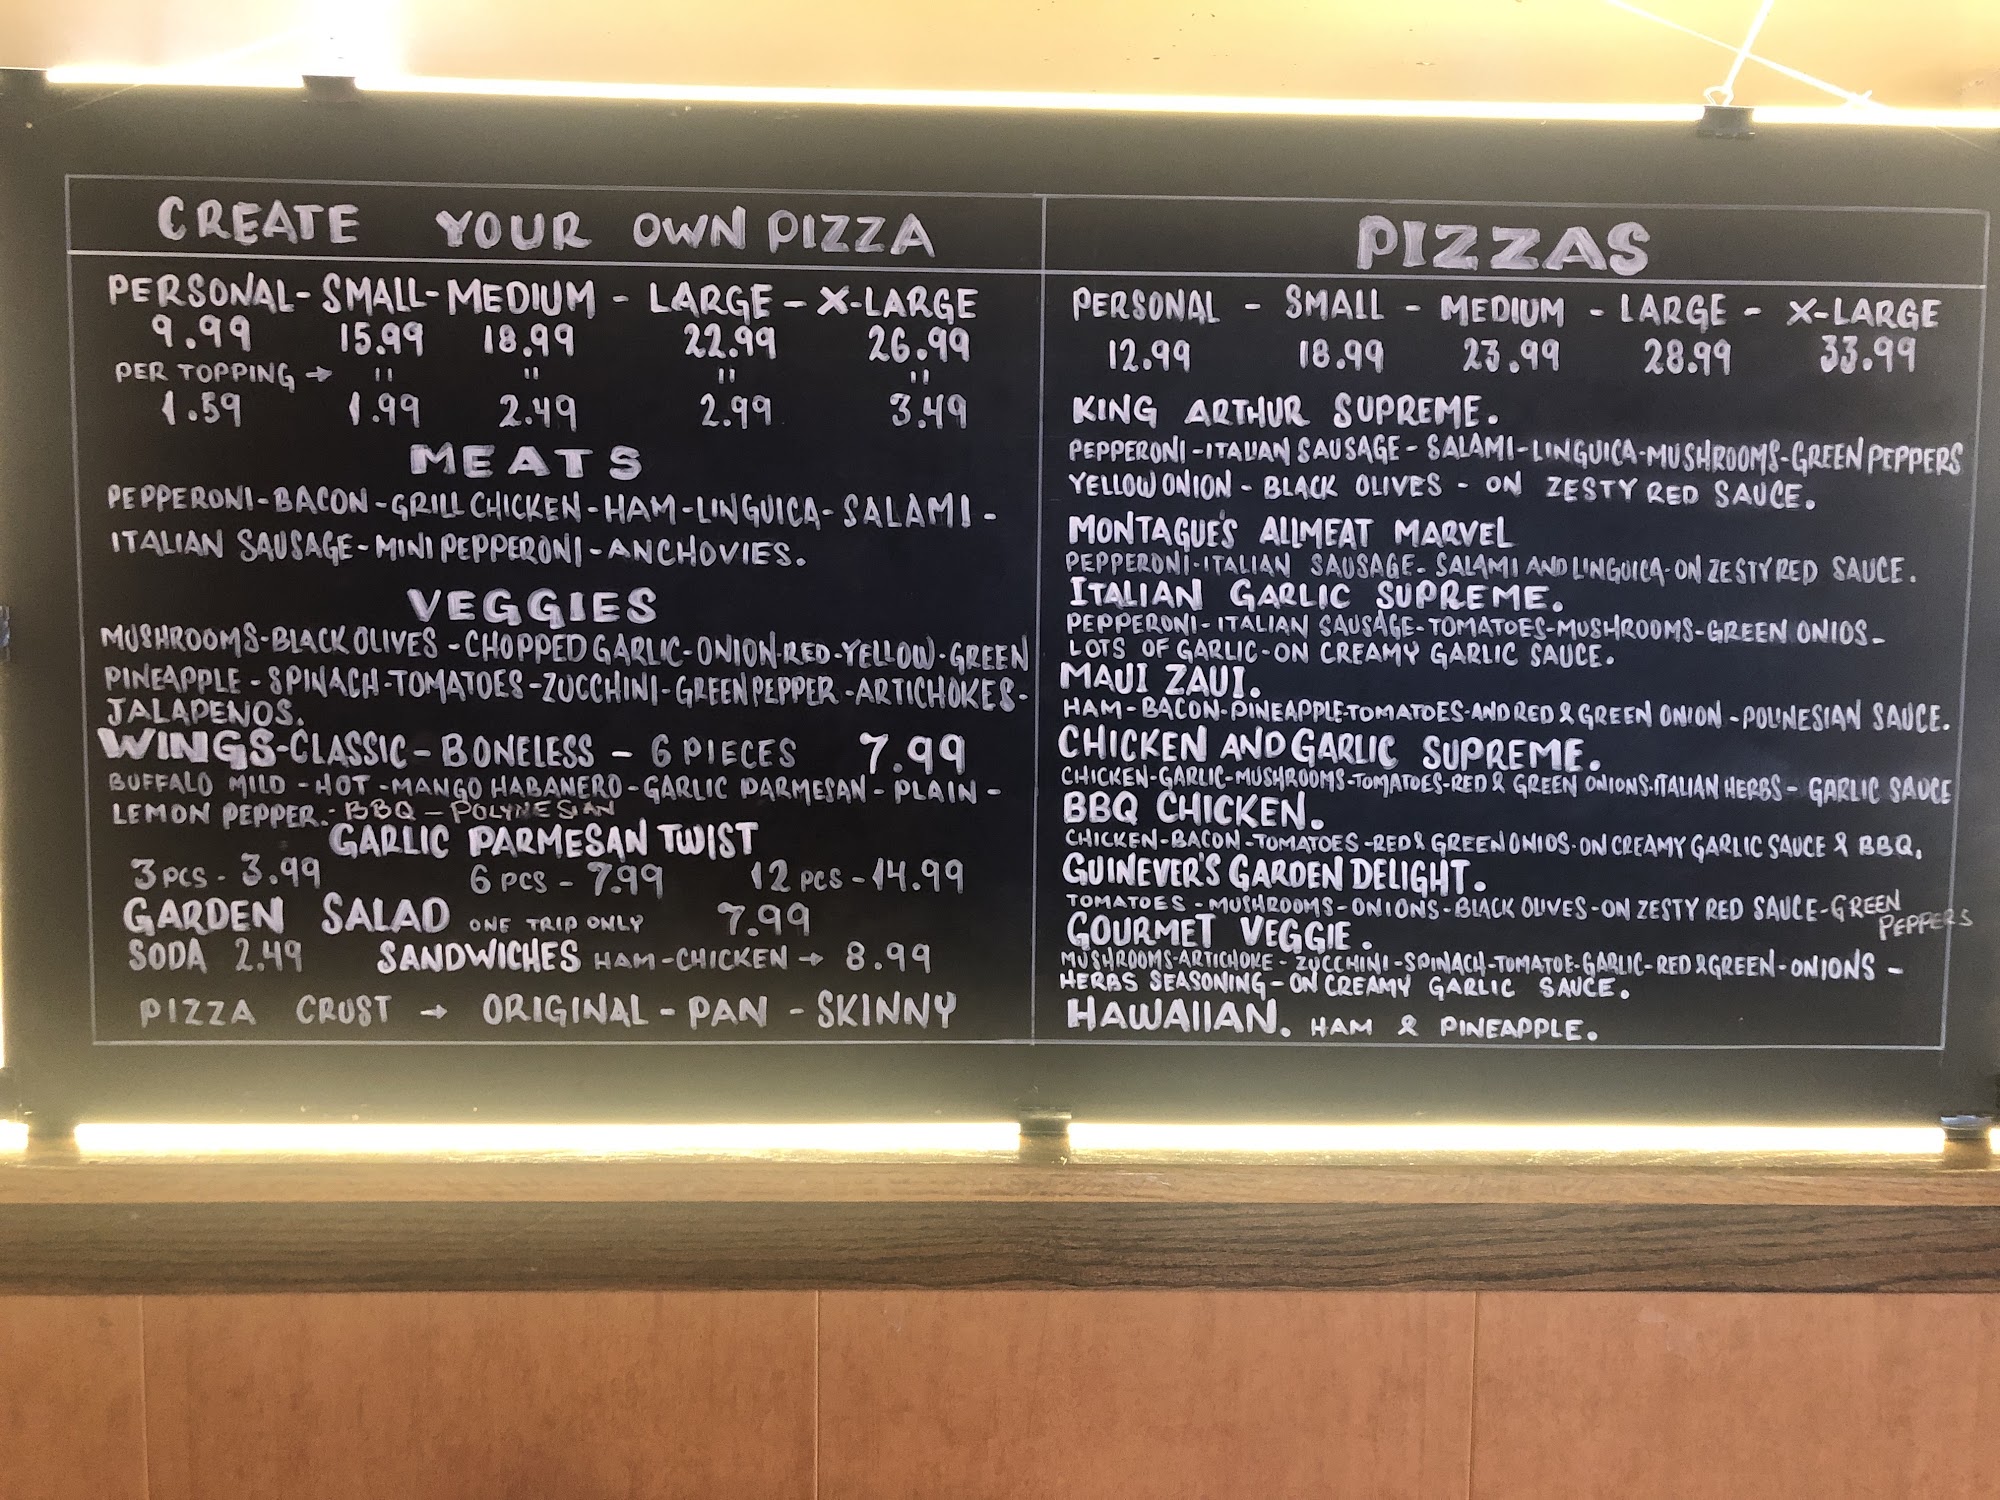 CREATE YOUR OWN PIZZA
PERSONAL - SMALL - MEDIUM - LARGE - X-LARGE
9.99 15.99 18.99 22.99 26.99
PER TOPPING → " " " "
1.59 1.99 2.49 2.99 3.49
MEATS
PEPPERONI - BACON - GRILL CHICKEN - HAM - LINGUICA - SALAMI -
ITALIAN SAUSAGE - MINI PEPPERONI - ANCHOVIES.
VEGGIES
MUSHROOMS - BLACK OLIVES - CHOPPED GARLIC - ONION-RED-YELLOW-GREEN
PINEAPPLE - SPINACH - TOMATOES - ZUCCHINI - GREEN PEPPER - ARTICHOKES -
JALAPENOS.
WINGS - CLASSIC - BONELESS - 6 PIECES 7.99
BUFFALO MILD - HOT - MANGO HABANERO - GARLIC PARMESAN - PLAIN -
LEMON PEPPER. - BBQ - POLYNESIAN
GARLIC PARMESAN TWIST
3 PCS - 3.99 6 PCS - 7.99 12 PCS - 14.99
GARDEN SALAD ONE TRIP ONLY 7.99
SODA 2.49 SANDWICHES HAM - CHICKEN → 8.99
PIZZA CRUST → ORIGINAL - PAN - SKINNY
PIZZAS
PERSONAL - SMALL - MEDIUM - LARGE - X-LARGE
12.99 18.99 23.99 28.99 33.99
KING ARTHUR SUPREME.
PEPPERONI - ITALIAN SAUSAGE - SALAMI - LINGUICA - MUSHROOMS - GREEN PEPPERS
YELLOW ONION - BLACK OLIVES - ON ZESTY RED SAUCE.
MONTAGUE'S ALLMEAT MARVEL
PEPPERONI - ITALIAN SAUSAGE - SALAMI AND LINGUICA - ON ZESTY RED SAUCE.
ITALIAN GARLIC SUPREME.
PEPPERONI - ITALIAN SAUSAGE - TOMATOES - MUSHROOMS - GREEN ONIOS -
LOTS OF GARLIC - ON CREAMY GARLIC SAUCE.
MAUI ZAUI.
HAM - BACON - PINEAPPLE - TOMATOES - AND RED & GREEN ONION - POLINESIAN SAUCE.
CHICKEN AND GARLIC SUPREME.
CHICKEN - GARLIC - MUSHROOMS - TOMATOES - RED & GREEN ONIONS - ITALIAN HERBS - GARLIC SAUCE
BBQ CHICKEN.
CHICKEN - BACON - TOMATOES - RED & GREEN ONIOS - ON CREAMY GARLIC SAUCE & BBQ.
GUINEVER'S GARDEN DELIGHT.
TOMATOES - MUSHROOMS - ONIONS - BLACK OLIVES - ON ZESTY RED SAUCE - GREEN
PEPPERS
GOURMET VEGGIE.
MUSHROOMS - ARTICHOKE - ZUCCHINI - SPINACH - TOMATOE - GARLIC - RED & GREEN - ONIONS -
HERBS SEASONING - ON CREAMY GARLIC SAUCE.
HAWAIIAN. HAM & PINEAPPLE.